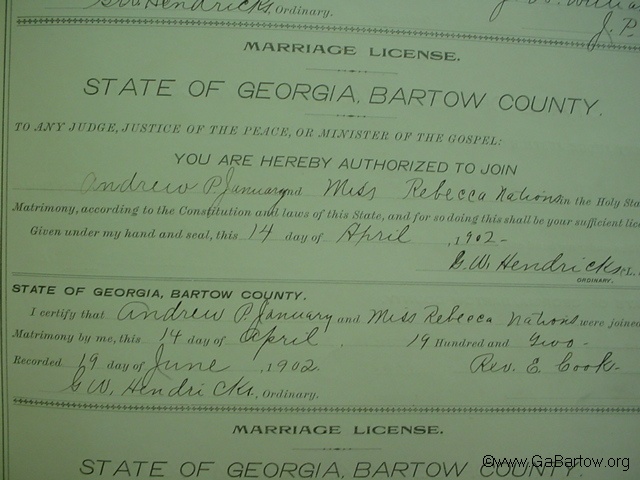 G.W. Hendricks, Ordinary.
J. P.
MARRIAGE LICENSE.
STATE OF GEORGIA, BARTOW COUNTY.
TO ANY JUDGE, JUSTICE OF THE PEACE, OR MINISTER OF THE GOSPEL:
YOU ARE HEREBY AUTHORIZED TO JOIN
Andrew P. January and Miss Rebecca Nations in the Holy Sta
Matrimony, according to the Constitution and laws of this State, and for so doing this shall be your sufficient lice
Given under my hand and seal, this 14 day of April, 1902-
G. W. Hendricks L.
ORDINARY.
STATE OF GEORGIA, BARTOW COUNTY.
I certify that Andrew P. January and Miss Rebecca Nations were joined
Matrimony by me, this 14 day of April. 19 Hundred and Two-
Recorded 19 day of June, 1902. Rev. E. Cook-
G W. Hendricks, Ordinary.
MARRIAGE LICENSE.
STATE OF GEORGIA, BARTOW COUNTY.
©www.GaBartow.org